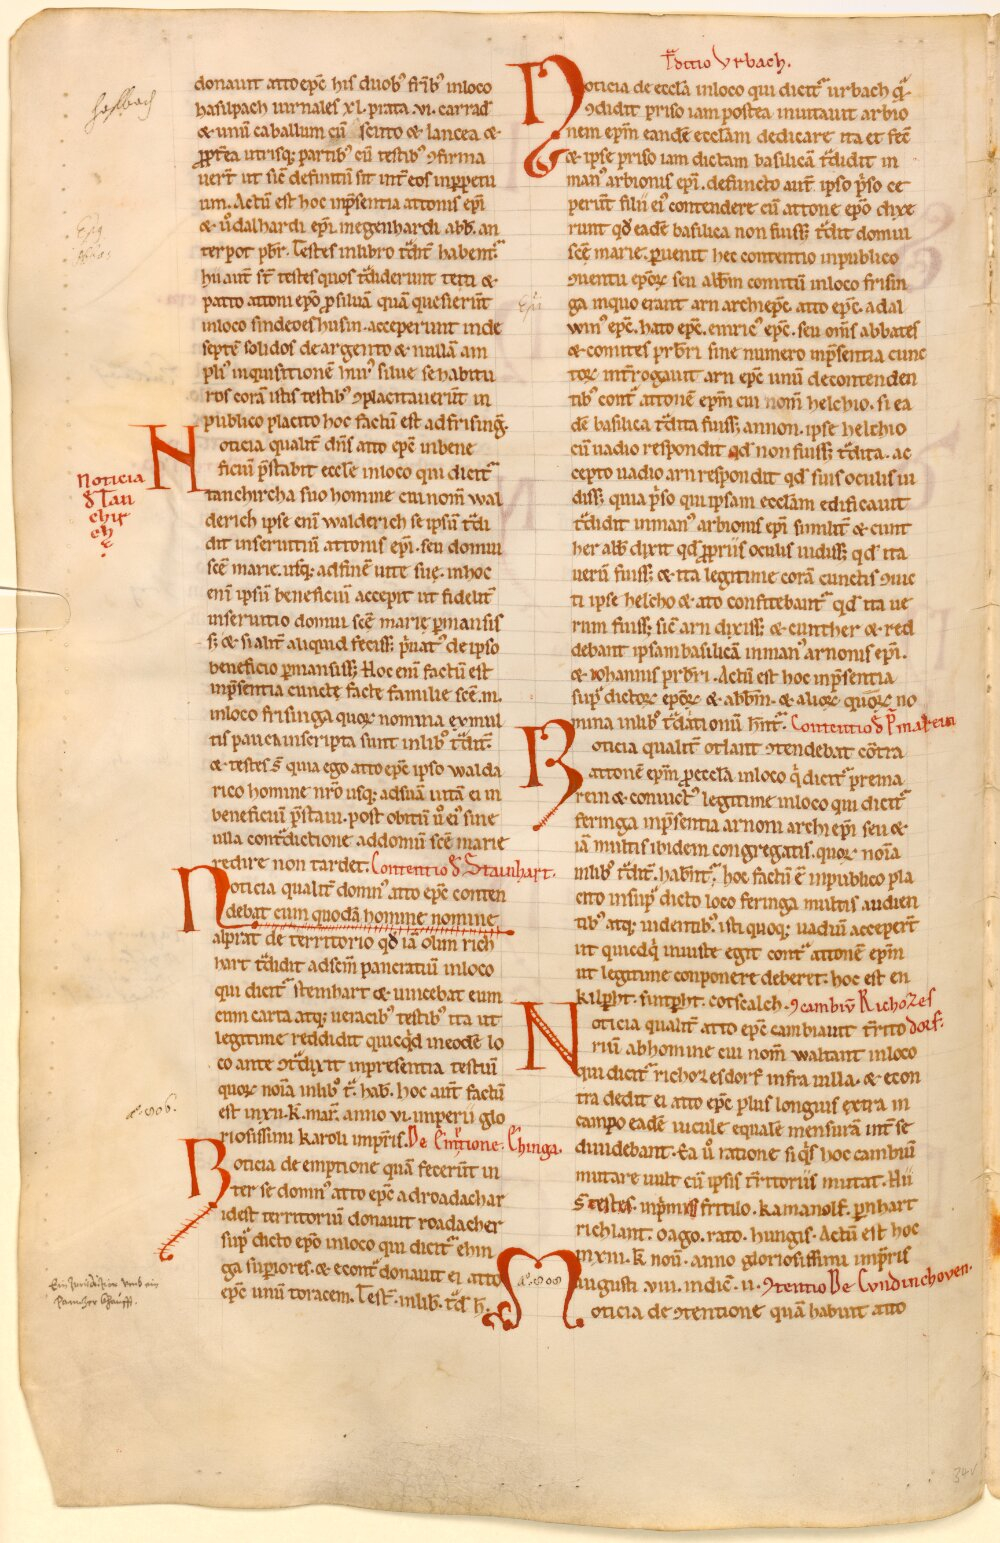 haslbach
donauit atto epc̄ his duob᷒ fr̄ib᷒ inloco
hasilpach uirnales xl. prata .vi. carrad᷒
& unū caballum cū scuto & lancea &
ꝓpt̄ea utrisq; partib᷒ cū testib᷒ ꝯfirma
uer̄t ut sic̄ definitū sit int̄ eos inꝑpetu
um. Actū est hoc inp̄sentia attonis ep̄i
& uͦdalhardi ep̄i megenhardi abb̄. an
terpot pb̄r. Testes inlibro t᷒dit̄ habent᷒
hii aut̄ st̄ testes quos t᷒diderunt tetti &
patto attoni ep̄o ꝓ siluā quā quesier̄t
inloco sindeoeshusin. acceperunt inde
septē solidos de argento & nullā am
pli᷒ inquisitionē hui᷒ silue se habitu
ros corā istis testib᷒ ꝯplacitauer̄t in
publico placito hoc factū est ad frising̅.
Noticia
d᷒ Tan
chir
ch
e
Noticia qualit̄ dn̄s atto epc̄ inbene
ficiū p̄stabit ecclē inloco qui dicit᷒
tanchircha suo homine cui nom̄ wal
derich ipse enī walderich se ipsū t᷒di
dit inseruitiū attonis ep̄i. seu domui
scē marie. usq; ad finē uite suę. inhoc
enī ipsū beneficiū accepit ut fidelit̄
inseruitio domui scē marię ꝑmansis
s; & si alit̄ aliquid feciss; p̄uat᷒ de ipso
beneficio ꝑmansiss; Hoc enī factū est
inp̄sentia cunctę factę familie scē. m.
inloco frisinga quoꝝ nomina ex mul
tis pauca inscripta sunt inlib᷒ t᷒dit̄.
& testes s̄ quia ego atto epc̄ ipso walda
rico homine nr̄o usq; ad suā uitā ei in
beneficiū p̄staui. post obitū uͦ ei᷒ sine
ulla cont᷒dictione ad domū scē marie
redire non tardet. Contentio d᷒ Stainhart.
Noticia qualit̄ domn᷒ atto epc̄ conten
debat cum quodā homine nomine
alprat de territorio qd̄ iā olim rich
hart t᷒didit ad sem̄ pancratiū inloco
qui dicit᷒ steinhart & uincebat eum
cum carta atq; ueracib᷒ testib᷒ ita ut
legitime reddidit quicqd̄ ineodē lo
co ante ꝯt᷒dixit inpresentia testiū
quoꝝ noīa inlib᷒ t᷒. hab̄. hoc aut̄ factū
est inxii. K. mar̄. anno vi. imperii glo
riosissimi karoli imp̄ris. De Emptione. Ehinga.
Noticia de emptione quā fecer̄t in
ter se domn᷒ atto epc̄ ad roadachar
idest territoriū donauit roadacher
sup᷒ dicto ep̄o inloco qui dicit᷒ ehin
ga supiores. & econt᷒ donauit ei atto
epc̄ unū toracem. Test̄. inlib̄. t᷒d h̄.
T᷒ditio Vrbach.
Noticia de ecclā inloco qui dicit᷒ urbach q᷒
ꝯdidit priso iam postea inuitauit arbio
nem ep̄m eandē ecclām dedicare ita et fec̄
& ipse priso iam dictam basilicā t᷒didit in
man᷒ arbionis ep̄i. defuncto aut̄ ipso p̄so ce
per̄t filii ei᷒ contendere cū attone ep̄o dixe
runt qd̄ eadē basilica non fuiss; t᷒dit domui
scē marie. ꝑuenit hec contentio inpublico
ꝯuentu ep̄oꝝ seu abb̄m comitū inloco frisin
ga inquo erant arn archiepc̄. atto epc̄. adal
win᷒ epc̄. hato epc̄. emric᷒ epc̄. seu om̄s abbates
& comites prb̄ri sine numero inp̄sentia cunc
toꝝ int̄rogauit arn epc̄ unū de contenden
tib᷒ cont᷒ attonē ep̄m cui nom̄ helchio. si ea
dē basilica t᷒dita fuiss; annon. ipse helchio
cū uadio respondit qd̄ non fuiss; t᷒dita. ac
cepto uadio arn respondit qd̄ suis oculis ui
diss; quia p̄so qui ipsam ecclām edificauit
t᷒didit inman᷒ arbionis ep̄i similit̄ & cunt
her abb̄ dixit qd̄ ꝓpriis oculis uidiss; qd̄ ita
uerū fuiss; & ita legitime corā cunctis ꝯuic
ti ipse helcho & ato confitebant᷒ qd̄ ita ue
rum fuiss; sic̄ arn dixiss; & cunther & red
debant ipsam basilicā inman᷒ arnonis ep̄i.
& iohannis prb̄ri. Actū est hoc inp̄sentia
sup᷒ dictoꝝ ep̄oꝝ & abb̄m. & alioꝝ quoꝝ no
mina inlib᷒ t᷒ditionū hn̄t᷒. Contentio d᷒ P᷒marein
Noticia qualit̄ otlant ꝯtendebat cōtra
attonē ep̄m ꝓ ecclā inloco q̇ dicit᷒ prema
rein & conuict᷒ legitime inloco qui dicit᷒
feringa inp̄sentia arnoni archiep̄i seu &
iā multis ibidem congregatis. quoꝝ noīa
inlib᷒ t᷒dit̄. habn̄t᷒, hoc factū ē inpublico pla
cito insup᷒ dicto loco feringa multis audien
tib᷒ atq; uidentib᷒. isti quoq; uadiū acceper̄t
ut quicqd̄ iniuste egit cont᷒ attonē ep̄m
ut legitime conponere deberet. hoc est en
kilpht. suntpht. cotscalch. ꝯcambiū Richozes
dorf.
Noticia qualit̄ atto epc̄ cambiauit t̄rito
riū ab homine cui nom̄ waltani inloco
qui dicit᷒ richozesdorf infra uilla. & econ
tra dedit ei atto epc̄ plus longius extra in
campo eadē uicule equale mensurā int̄ se
diuidebant. Ea uͦ ratione si qs̄ hoc cambiū
mutare uult cū ipsis t̄rritoriis mutat. Hii
s̄ testes. inp̄mis fritilo. kamanolf. p̄nhart
richlant. oago. rato. hungis. Actū est hoc
inxiii. k. noū. anno gloriosissimi imp̄ris
augusti. viii. indic̄. ii. ꝯtentio De Cundinchoven.
Noticia de ꝯtentione quā habuit atto
34v